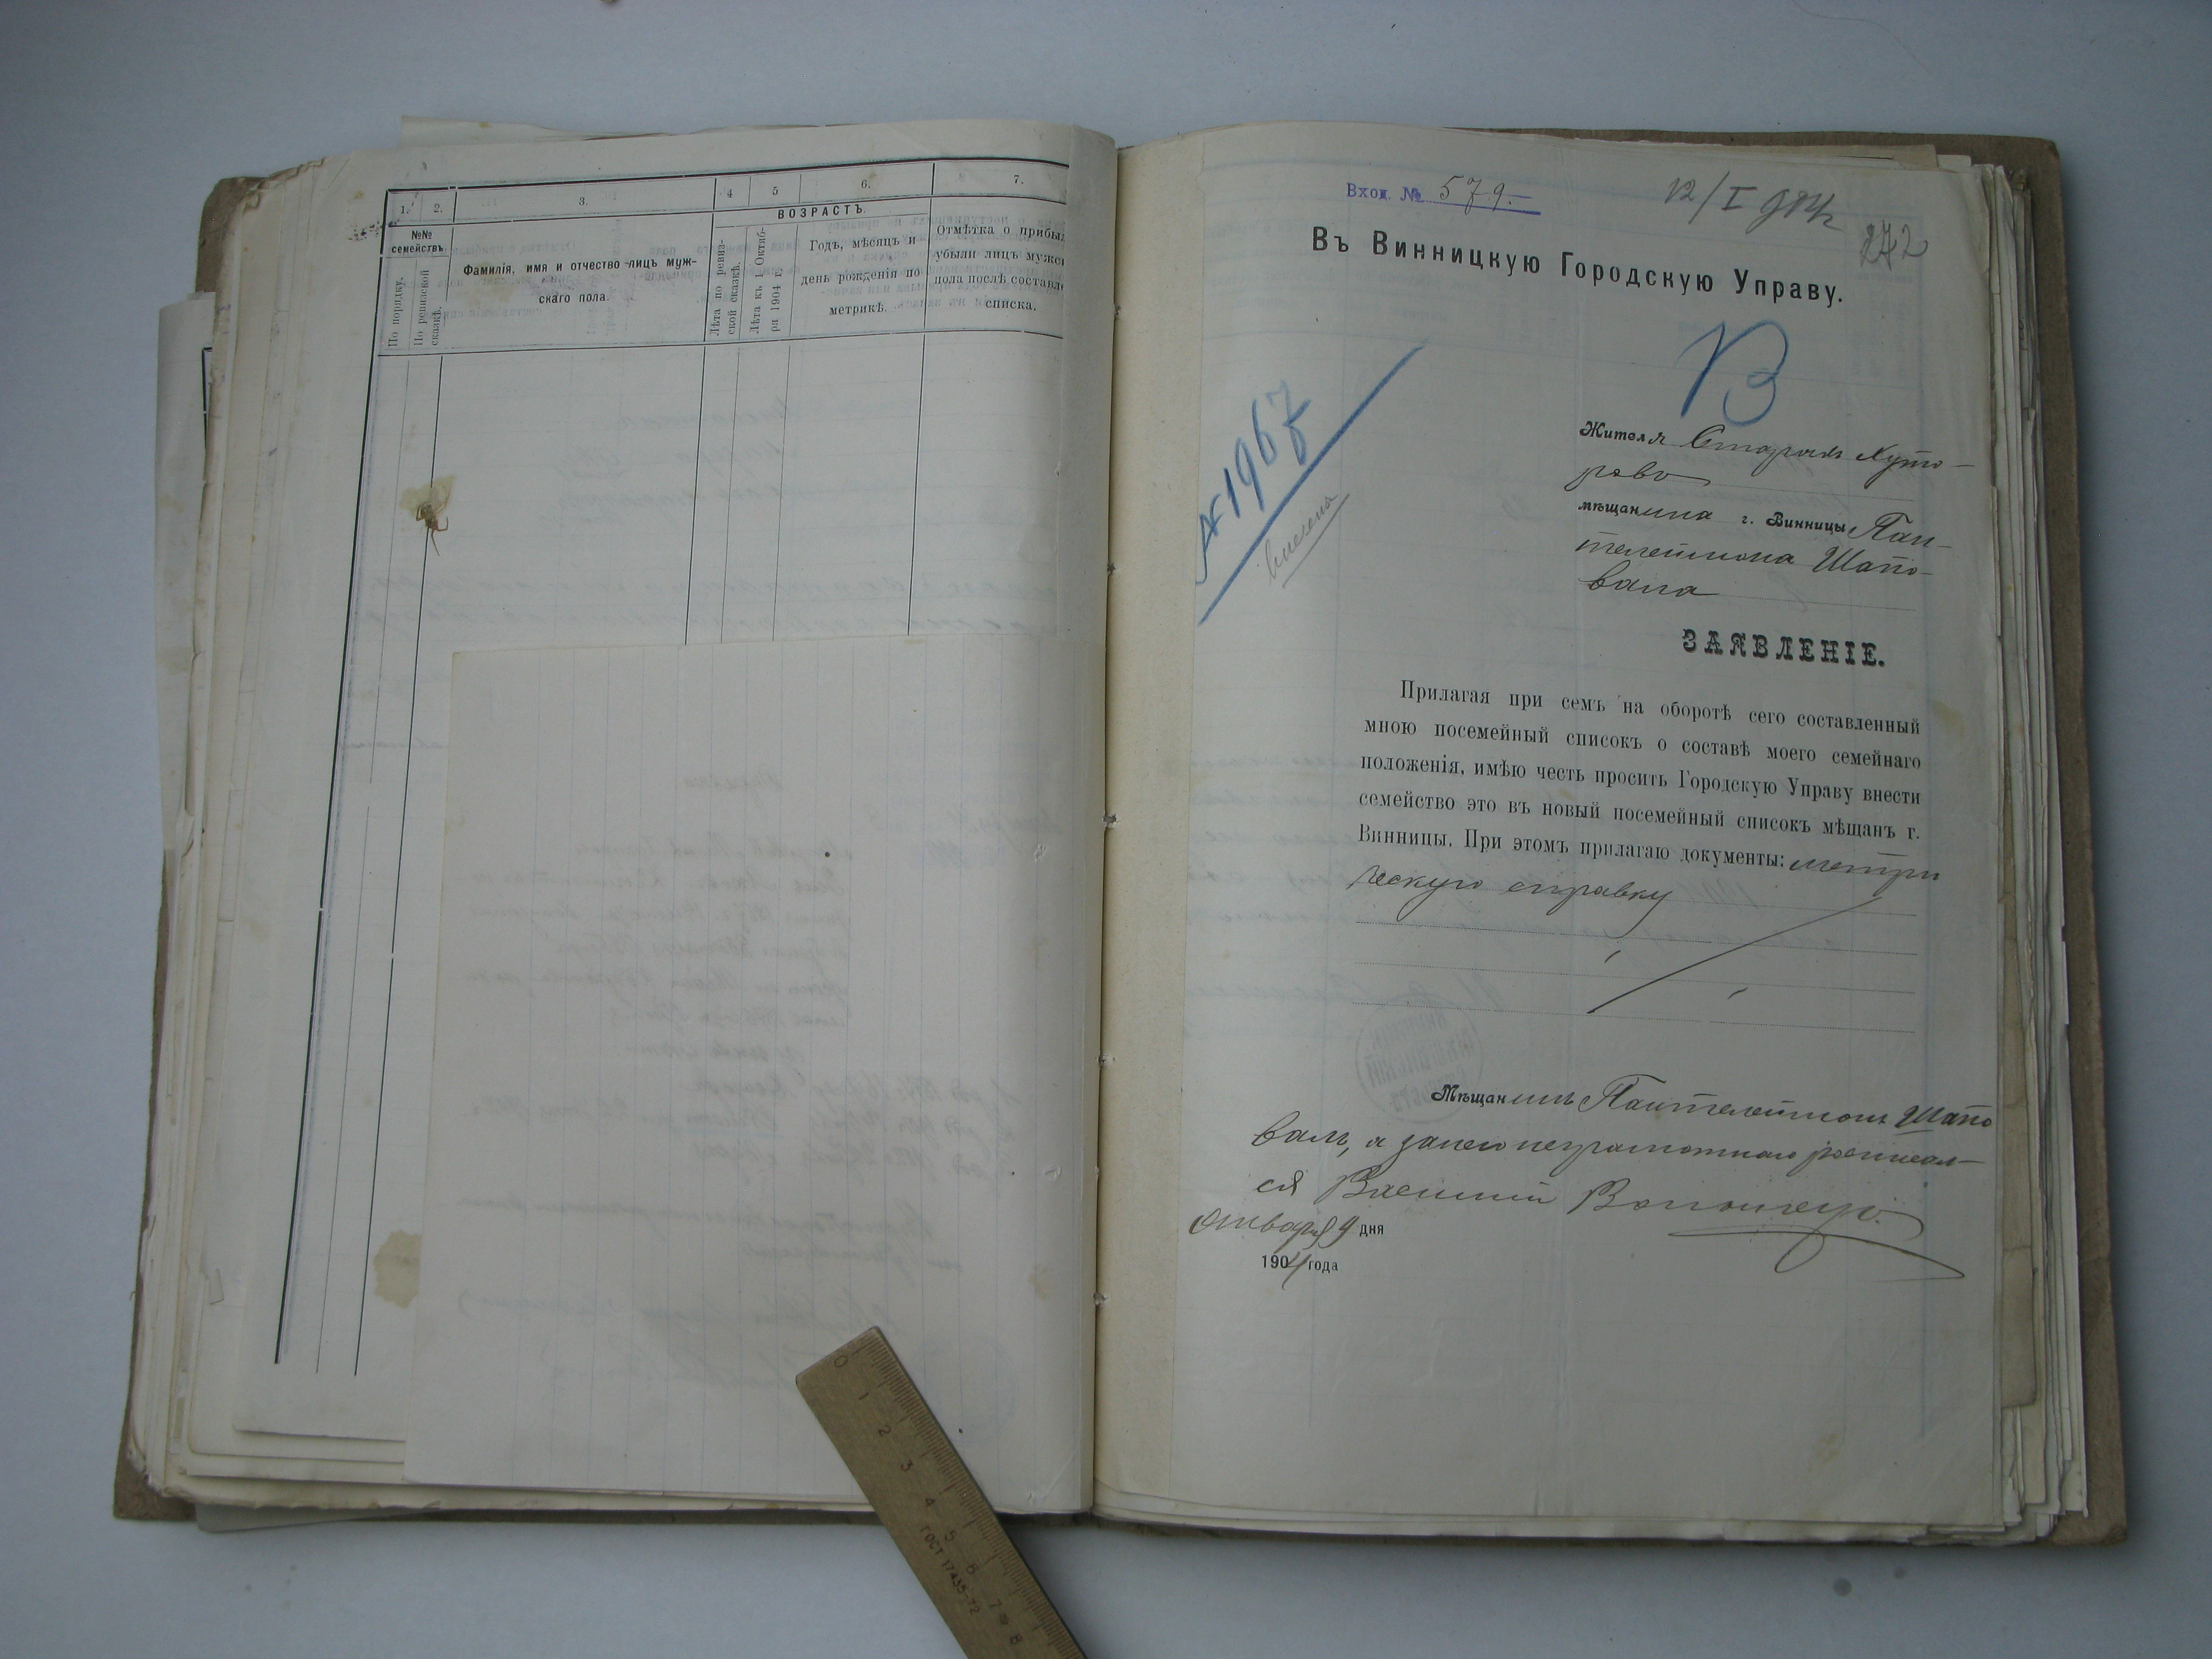 1. 2. 3. 4 5 6. 7.
№№ семействъ.
По порядку.
По ревизской сказкѣ.
Фамилія, имя и отчество лицъ муж-
скаго пола.
ВОЗРАСТЪ.
Лѣта по ревиз-
ской сказкѣ.
Лѣта къ 1 Октяб-
ря 1904 г.
Годъ, мѣсяцъ и
день рожденія по
метрикѣ.
Отмѣтка о прибы
убыли лицъ мужс
пола послѣ составл
списка.
Вход. № 579.
12/I
242
Въ Винницкую Городскую Управу.
В
№ 1967
внесена
Жителя Старыхъ Хуто-
ровъ
мѣщанина г. Винницы Пан-
телеймона Шапо-
вала
ЗАЯВЛЕНІЕ.
Прилагая при семъ на оборотѣ сего составленный
мною посемейный списокъ о составѣ моего семейнаго
положенія, имѣю честь просить Городскую Управу внести
семейство это въ новый посемейный списокъ мѣщанъ г.
Винницы. При этомъ прилагаю документы: метри
ческую справку
Мѣщанинъ Пантелеймонъ Шапо
валъ, а за него неграмотнаго росписал-
ся Василий
января 9 дня
1904 года
0 1 2 3 4 5 6 7 8
ГОСТ 17435-72